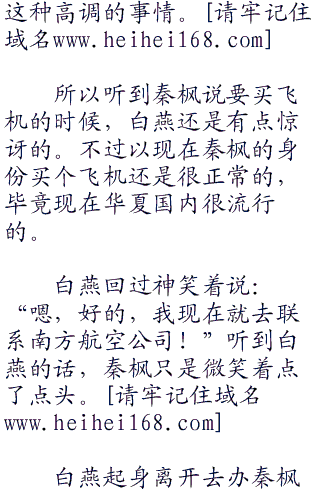 这种高调的事情。[请牢记住
域名www.heihei168.com]
所以听到秦枫说要买飞
机的时候，白燕还是有点惊
讶的。不过以现在秦枫的身
份买个飞机还是很正常的，
毕竟现在华夏国内很流行
的。
白燕回过神笑着说：
“嗯，好的，我现在就去联
系南方航空公司！”听到白
燕的话，秦枫只是微笑着点
了点头。[请牢记住域名
www.heihei168.com]
白燕起身离开去办秦枫